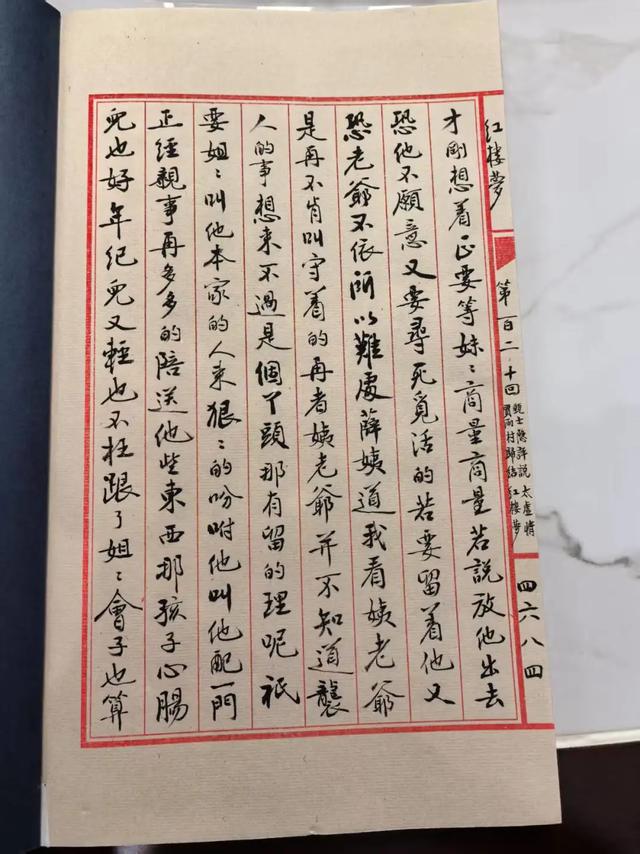 红楼梦
第一百二十回
甄士隐詳説太虚情
賈雨村歸结红楼夢
四六八四
才剛想着正要等妹〻商量商量若説放他出去
恐他不願意又要尋死覓活的若要留着他又
恐老爺不依所以難處薛姨道我看姨老爺
是再不肯叫守着的再者姨老爺并不知道襲
人的事想来不過是個丫頭那有留的理呢衹
要姐〻叫他本家的人来狠〻的吩咐他叫他配一門
正经親事再多多的陪送他些東西那孩子心腸
兒也好年纪兒又輕也不枉跟了姐〻會子也算